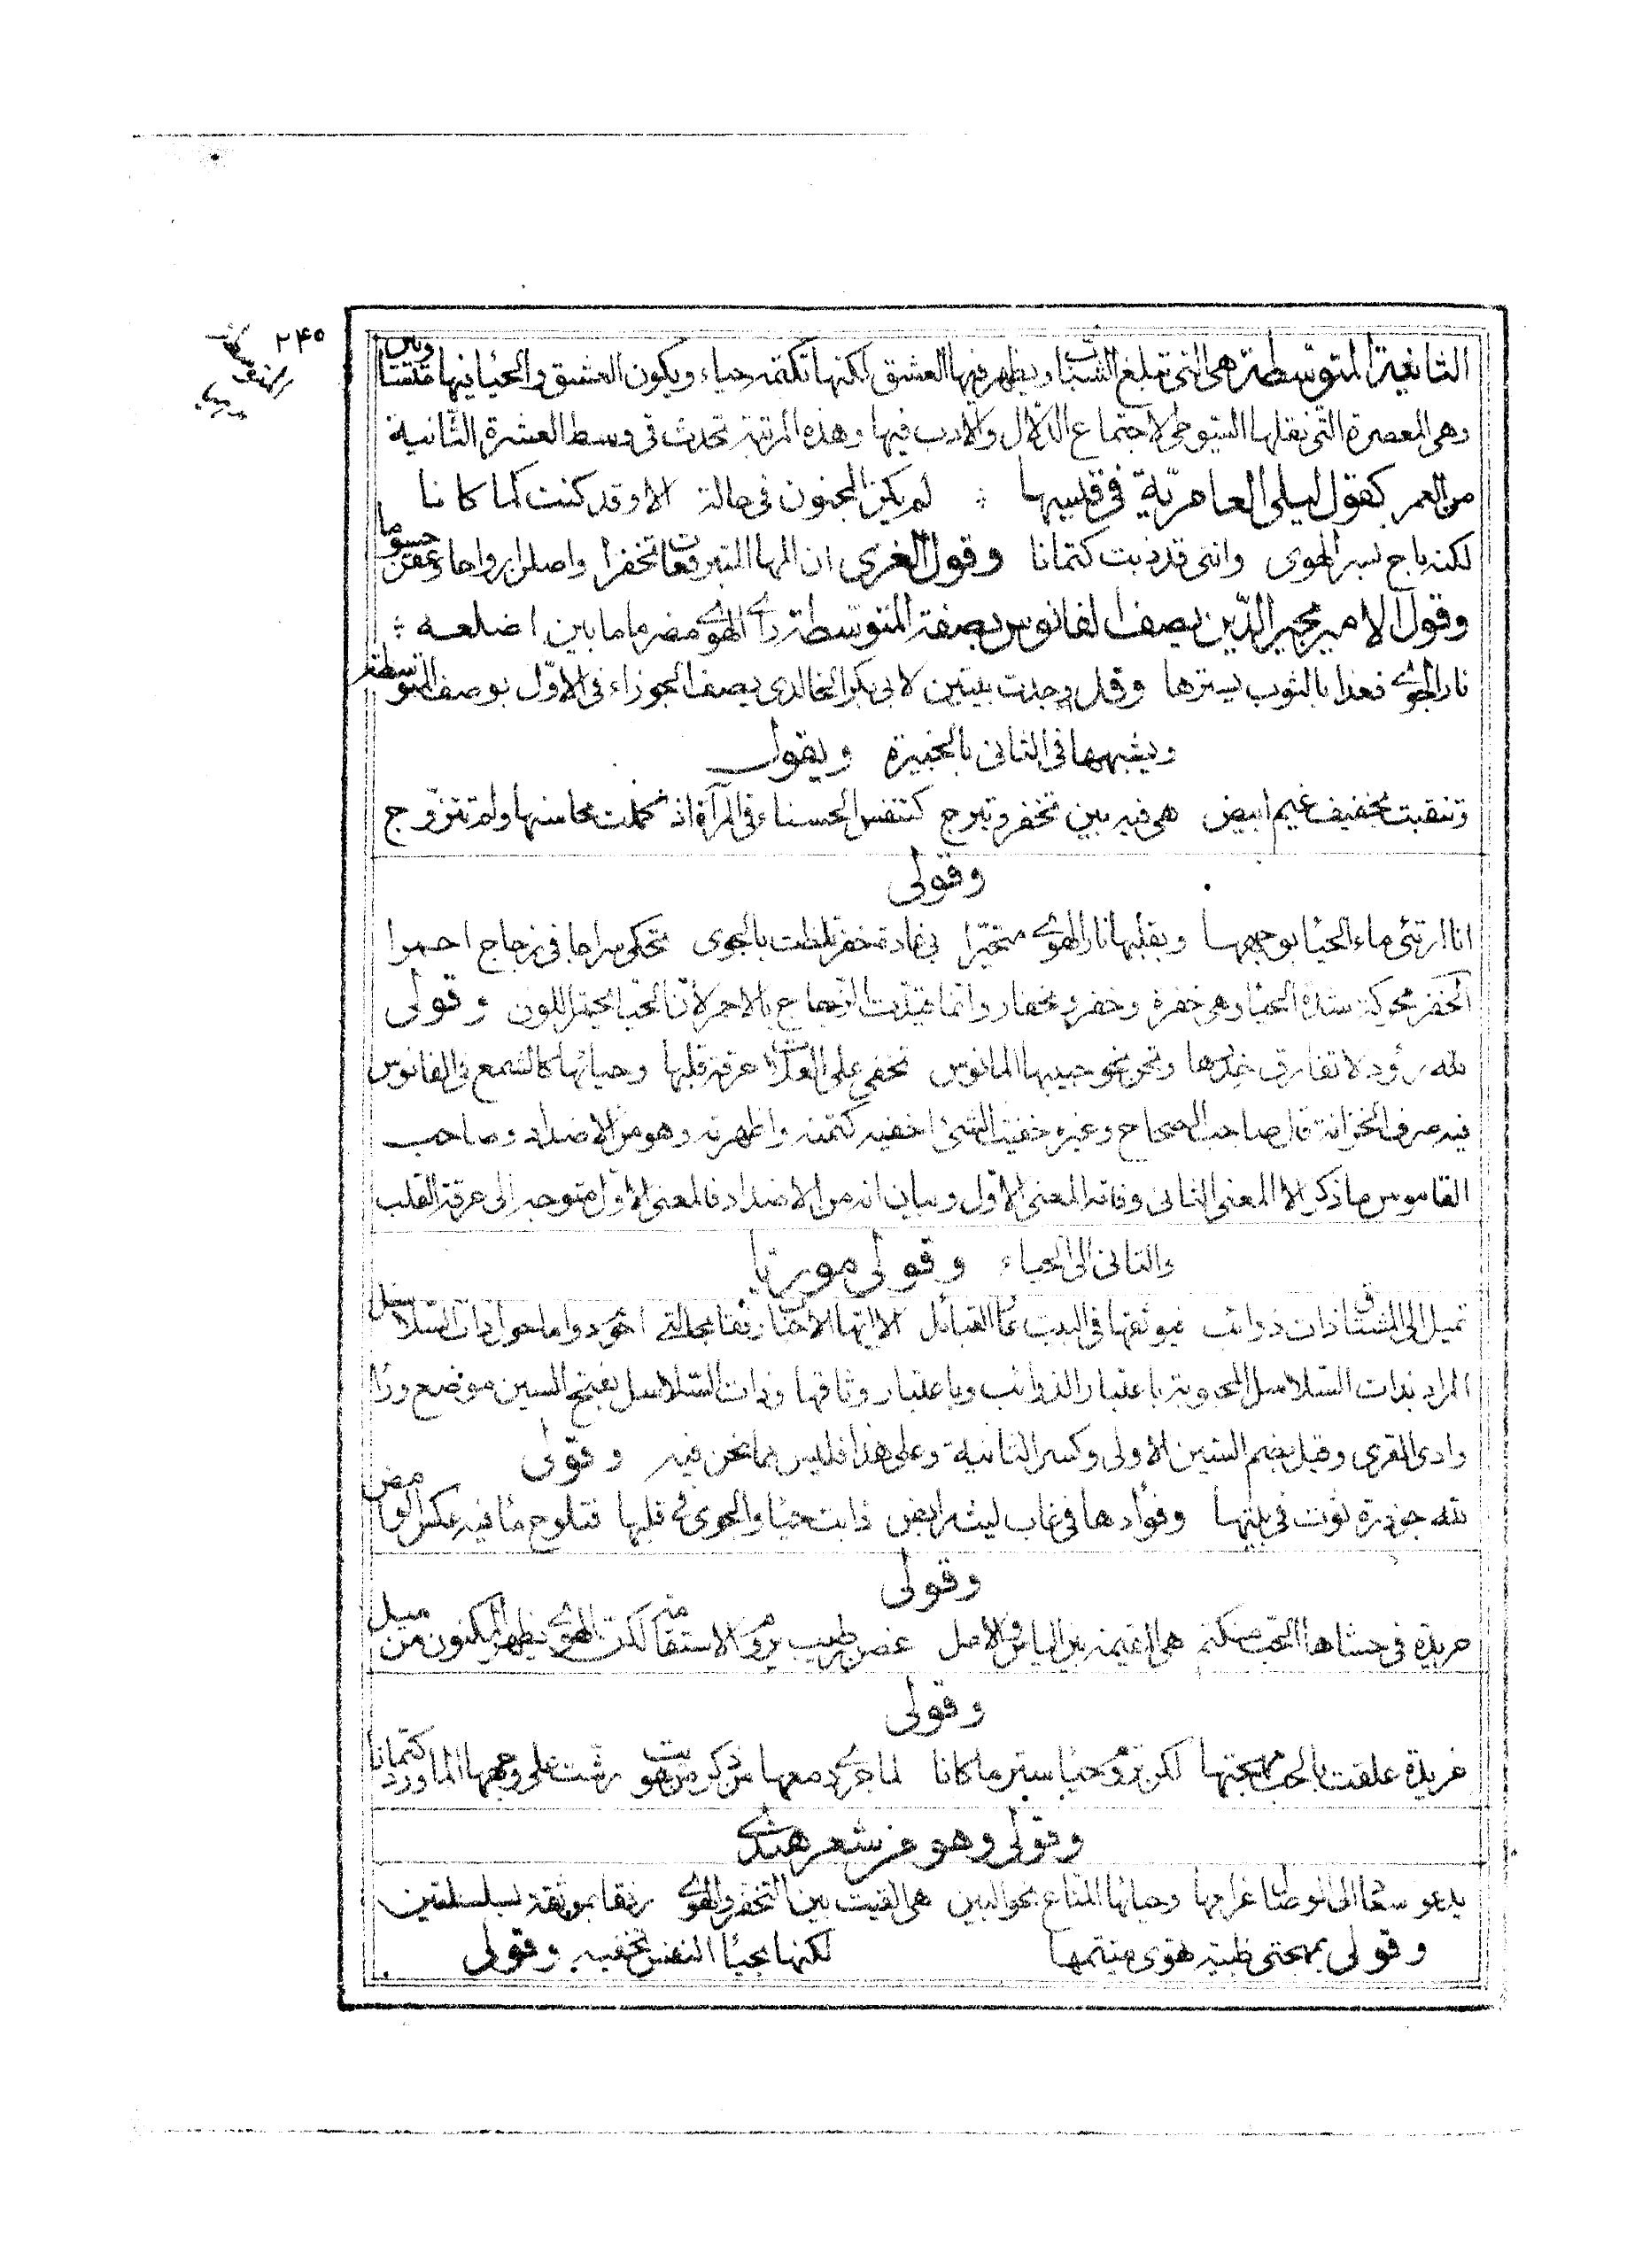 ٢٤٥
الثانية المتوسطة هى التى تبلغ الشباب ويظهر فيها العشق لكنها تكتمه حياء ويكون العشق والحيا فيها متساويين
وهى المعصرة التى نقلها السيوطى لاجتماع الدلال والادب فيها وهذه المرتبة تحدث فى وسط العشرة الثانية
من العمر كقول ليلى العامرية فى قيسها لم يكن المجنون فى حالة الا وقد كنت كما كانا
لكنه باح بسر الهوى واننى قد ذبت كتمانا وقول الغزى ان المها المتبرقعات تخفرا واصلن ارواحا وعفن جسوما
وقول الامير مجير الدين يصف الفانوس بصفة المتوسطة راى الهوى مضرما ما بين اضلعه
نار الجوى فغدا بالثوب يسترها وقد وجدت بيتين لابى بكر الخالدى يصف الجوزاء فى الاول بوصف المتوسطة
ويشبهها فى الثانى بالخبيرة ويقول
وتنقبت بخفيف غيم ابيض هى فيه بين تخفر وتبرج كتنفس الحسناء فى المرآة اذ كملت محاسنها ولم تتزوج
وقولى
انا ارتئى ماء الحيا بوجهها وبقلبها نار الهوى متحيرا فى غادة خفر تلظت بالجوى تحكى سراجا فى زجاج احمرا
الخفر محركة شدة الحيا وهى خفرة وخفر ومخفار وانما قيدت الزجاج بالاحمر لان الحيا يحمر اللون وقولى
لله رؤد لا تفارق خدرها وتحن نحو حبيبها المانوس تخفى على العذال حرقة قلبها وحيائها كالشمع فى الفانوس
فيه صرف الخزانة قال صاحب الصحاح وغيره خفيت الشئ اخفيه كتمته واظهرته وهو من الاضداد وصاحب
القاموس ما ذكر الا المعنى الثانى وفاته المعنى الاول وبيان انه من الاضداد فالمعنى الاول متوجه الى حرقة القلب
والثانى الى الحياء وقولى موريا
تميل الى المشتاق ذات ذوائب فيوثقها فى البيت الا ايها الاحباب رفقا بحالتى اجود واما حول ذات السلاسل
المراد بذات السلاسل المحبوبة باعتبار الذوائب وباعتبار وثاقها وذات السلاسل بفتح السين موضع وراء
وادى القرى وقيل بضم السين الاولى وكسر الثانية وعلى هذا فليس مما نحن فيه وقولى
لله جوذرة ثوت فى بيتها وفوادها فى غاب ليث رابض ذابت حيا والجوى فى قلبها فتلوح ما فيه عكس الوامض
وقولى
خريدة فى حشاها الحب مكتم هى المقيمة بين الياس والامل غصن رطيب يروم الاستقامة لكن الهوى يظهر المكنون من ميل
وقولى
خريدة علقت بالحب مهجتها لكن تروم حيا ستر ما كانا لما جرى دمعها من ذكر من هويت رشت على وجهها الماورد كتمانا
وقولى وهو من شعر هندى
يدعو سعاد الى الوطا غرامها وحيائها المناع نحو البين هى القيت بين التخفر والهوى رفقا بموثقة بسلسلتين
وقولى بمهجتى ظبية تهوى متيمها لكنها بحياء النفس تخفيه وقولى